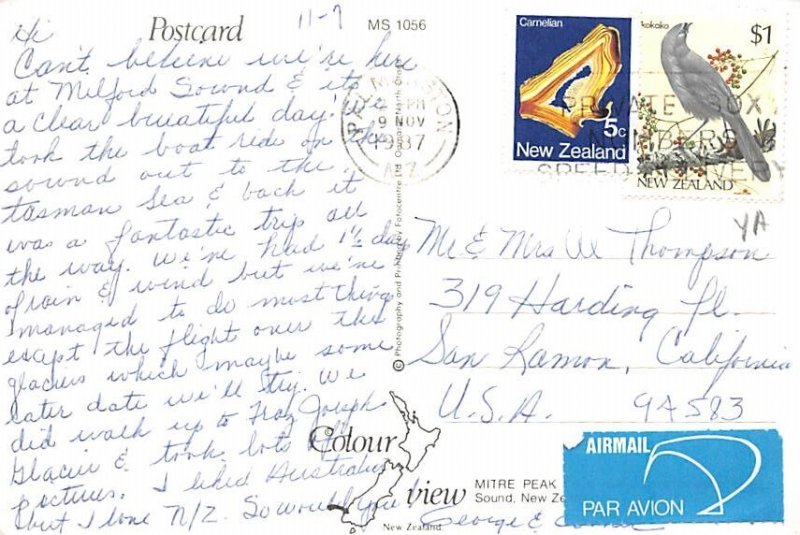 Postcard
11-7
MS 1056
Hi
Can't believe we're here
at Milford Sound & its
a clear beuatiful day! We
took the boat ride on the
sound out to the
Tasman Sea & back it
was a fantastic trip all
the way. We've had 1½ day
of rain & wind but we've
managed to do most things
except the flight over the
glaciers which maybe some
later date we'll try. We
did walk up to Franz Joseph
Glacier & took lots of
pictures. I liked Australia
but I love N/Z. So would you!
George &
© Photography and Printing by Fotocentre Ltd. Oamaru, North Otago
9 NOV
1987
PRIVATE BOX
NUMBERS
SPEED DELIVERY
Carnelian
5c
New Zealand
kokako
$1
NEW ZEALAND
YA
Mr & Mrs W Thompson
319 Harding Pl.
San Ramon, California
U.S.A. 94583
Colour
view
New Zealand
MITRE PEAK
Sound, New Ze
AIRMAIL
PAR AVION